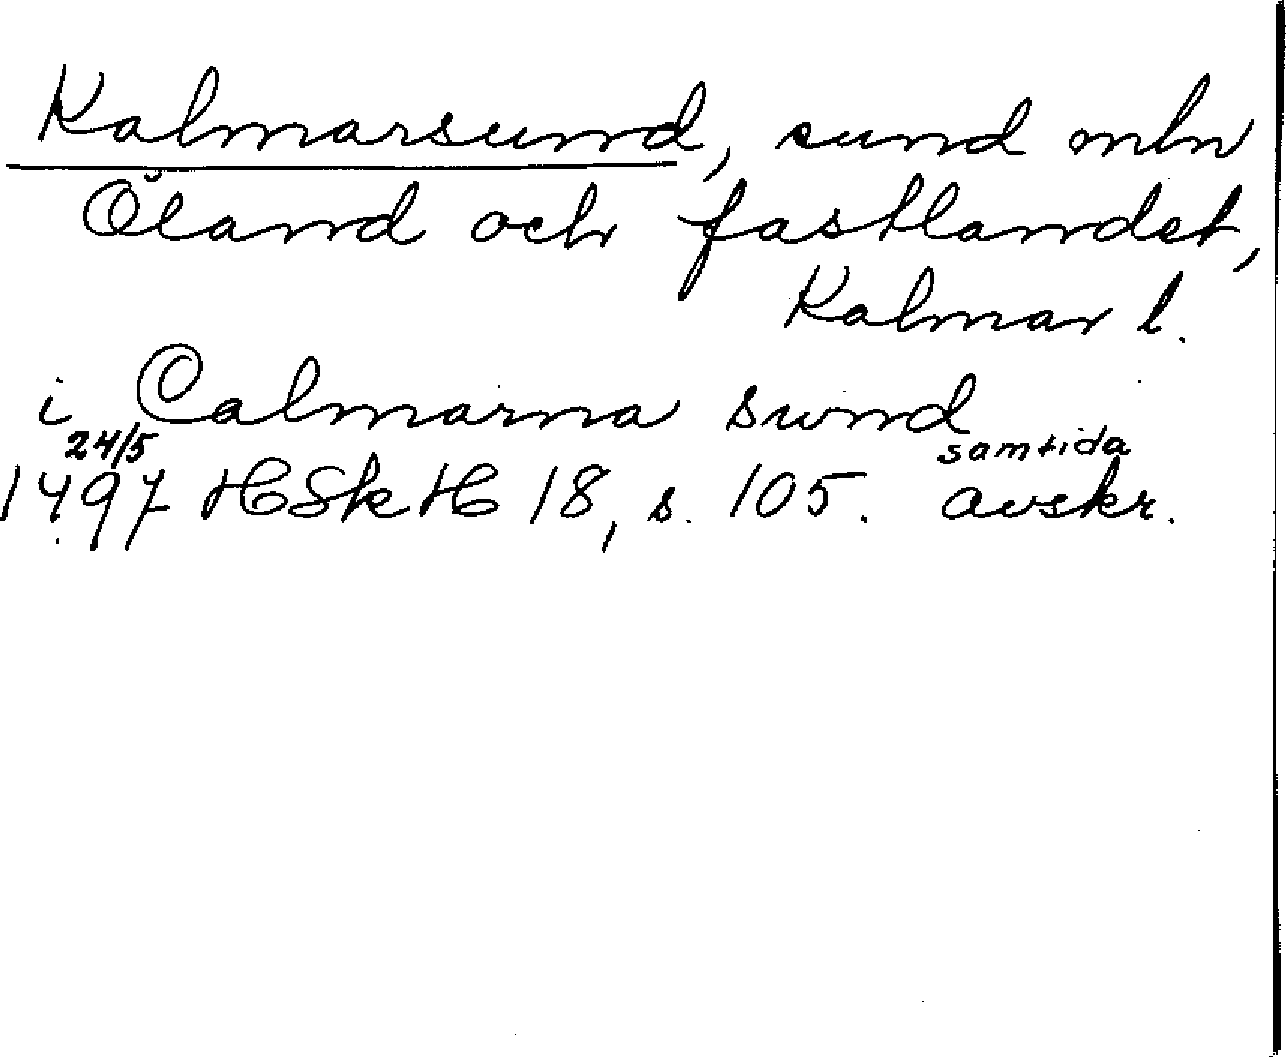 Kalmarsund, sund mln
Öland och fastlandet,
Kalmar l.
i Calmarna sund
24/5 samtida
1497 HSkH 18, s. 105. avskr.